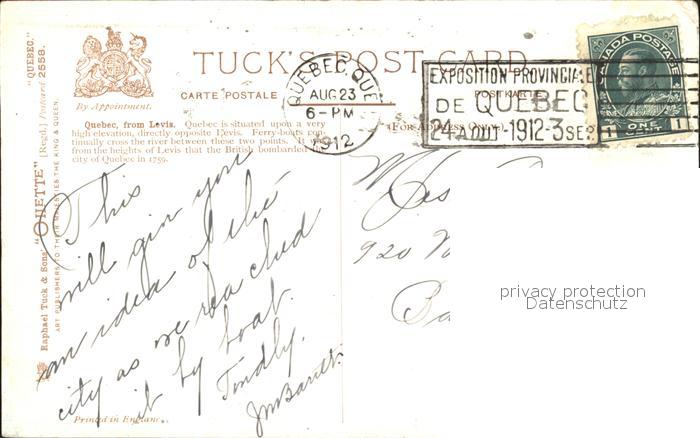 "QUEBEC."
[Regd.] Postcard 2558.
"OILETTE"
Raphael Tuck & Sons'
ART PUBLISHERS TO THEIR MAJESTIES THE KING & QUEEN.
By Appointment.
TUCK'S POST CARD
CARTE POSTALE
POSTKARTE
(FOR ADDRESS ONLY)
Quebec, from Levis. Quebec is situated upon a very
high elevation, directly opposite Levis. Ferry-boats con-
tinually cross the river between these two points. It was
from the heights of Levis that the British bombarded the
city of Quebec in 1759.
QUEBEC, QUE.
AUG 23
6-PM
1912
EXPOSITION PROVINCIALE
DE QUEBEC
24 AOUT-1912-3 SEP
CANADA POSTAGE
1 ONE 1
This
will give you
an idea of the
city as we reached
it by boat.
Fondly,
920
Ba
Printed in England.
privacy protection
Datenschutz